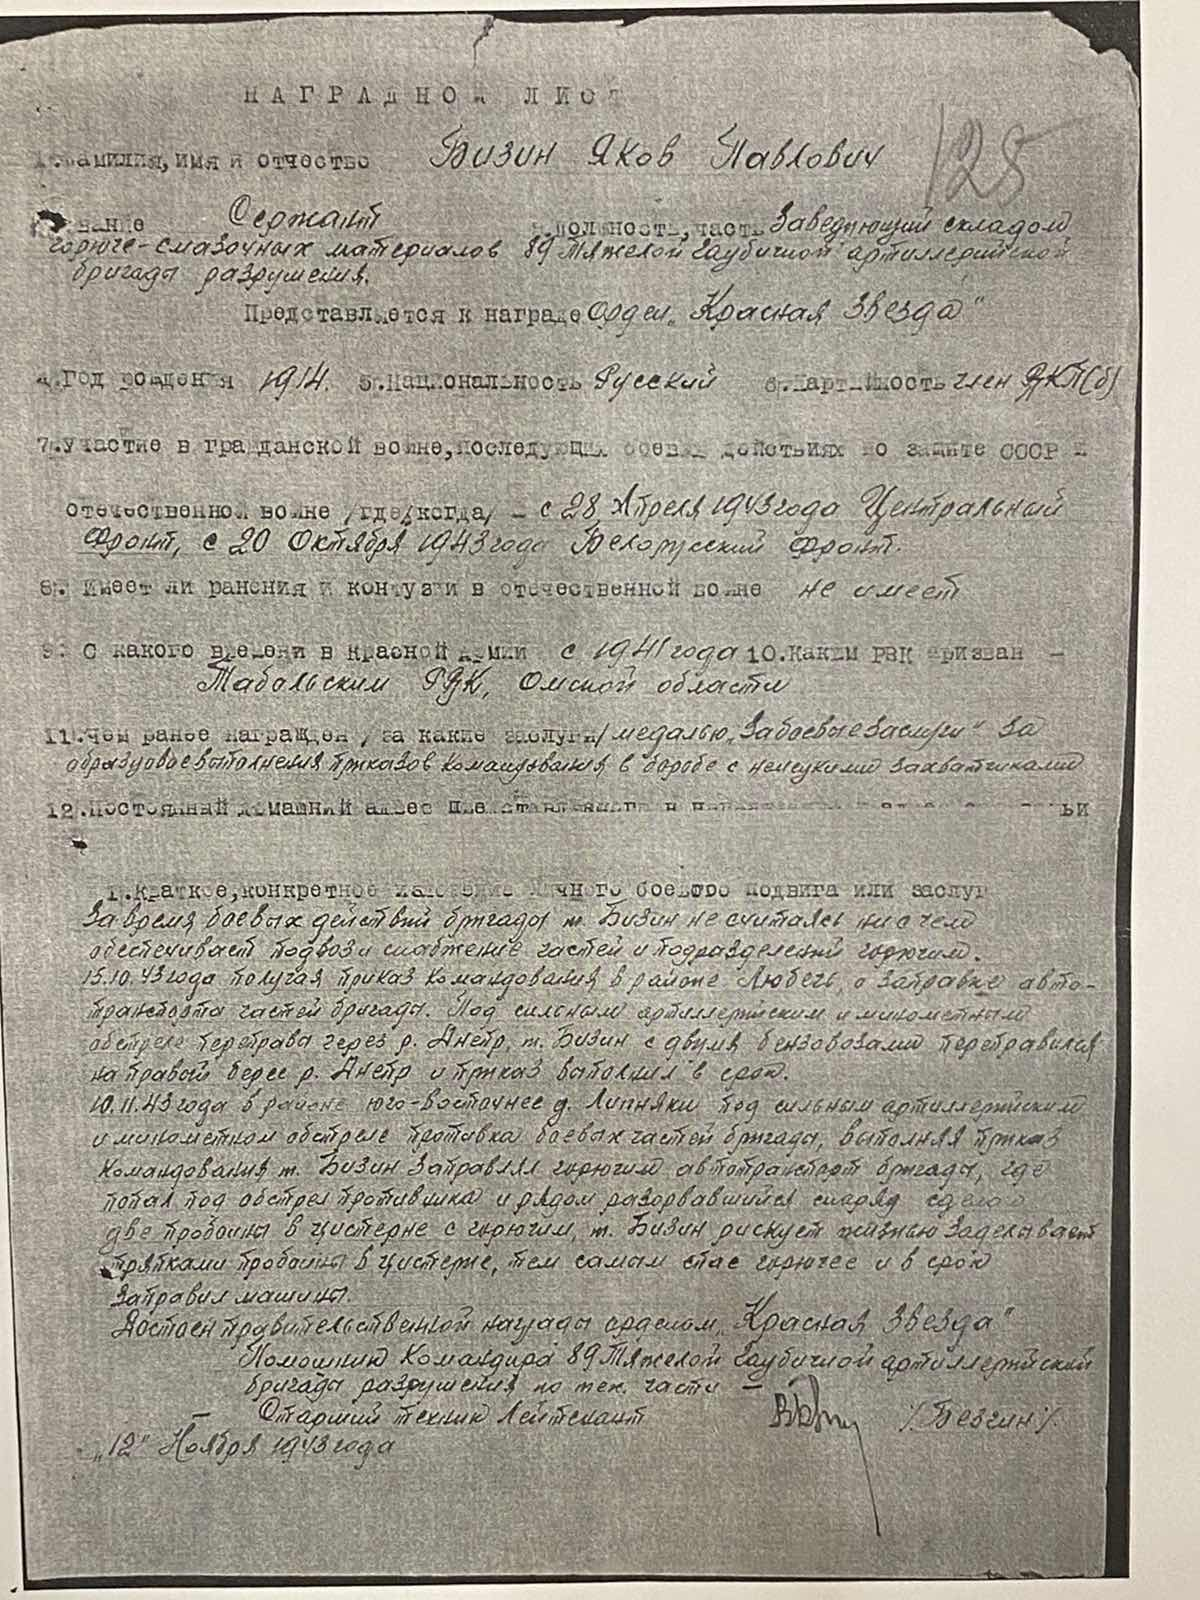 НАГРАДНОЙ ЛИСТ
125
1.Фамилия,имя и отчество Бизин Яков Павлович
звание Сержант 3.должность,часть Заведующий складом
горюче-смазочных материалов 89 Тяжелой Гаубичной артиллерийской
бригады разрушения.
Представляется к награде Орден „Красная Звезда"
4.Год рождения 1914. 5.Национальность Русский 6.Партийность член ВКП(б)
7.Участие в гражданской войне,последующих боевых действиях по защите СССР и
отечественной войне /где,когда/ – с 28 Апреля 1943 года Центральный
Фронт, с 20 Октября 1943 года Белорусский Фронт.
8. Имеет ли ранения и контузии в отечественной войне не имеет
9. С какого времени в Красной Армии с 1941 года 10.Каким РВК призван –
Табольским РВК, Омской области
11.Чем ранее награжден /за какие заслуги/ медалью „За боевые заслуги" за
образцовое выполнения приказов командования в борьбе с немецкими захватчиками
12.Постоянный домашний адрес представляемого к
1.Краткое,конкретное изложение личного боевого подвига или заслуг
За время боевых действий бригады т. Бизин не считаясь ни с чем
обеспечивает подвоз и снабжение частей и подразделений горючим.
15.10.43 года получая приказ командования в районе Любечь, о заправке авто-
транспорта частей бригады. Под сильным артиллерийским и минометным
обстреле переправа через р. Днепр, т. Бизин с двумя бензовозами переправился
на правый берег р. Днепр и приказ выполнил в срок.
10.11.43 года в районе юго-восточнее д. Липняки под сильным артиллерийским
и минометном обстреле противка боевых частей бригады, выполняя приказ
командования т. Бизин заправлял горючим автотранспорт бригады, где
попал под обстрел противника и рядом разорвавшийся снаряд сделал
две пробоины в цистерне с горючим, т. Бизин рискует жизнью заделывает
тряпками пробоины в цистерне, тем самым спас горючее и в срок
заправил машины.
Достоен правительственной награды орденом „Красная Звезда"
Помошник Командира 89 Тяжелой Гаубичной артиллерийский
бригады разрушения по тех. части –
Старший техник Лейтенант /Безгин/.
„12" Ноября 1943 года